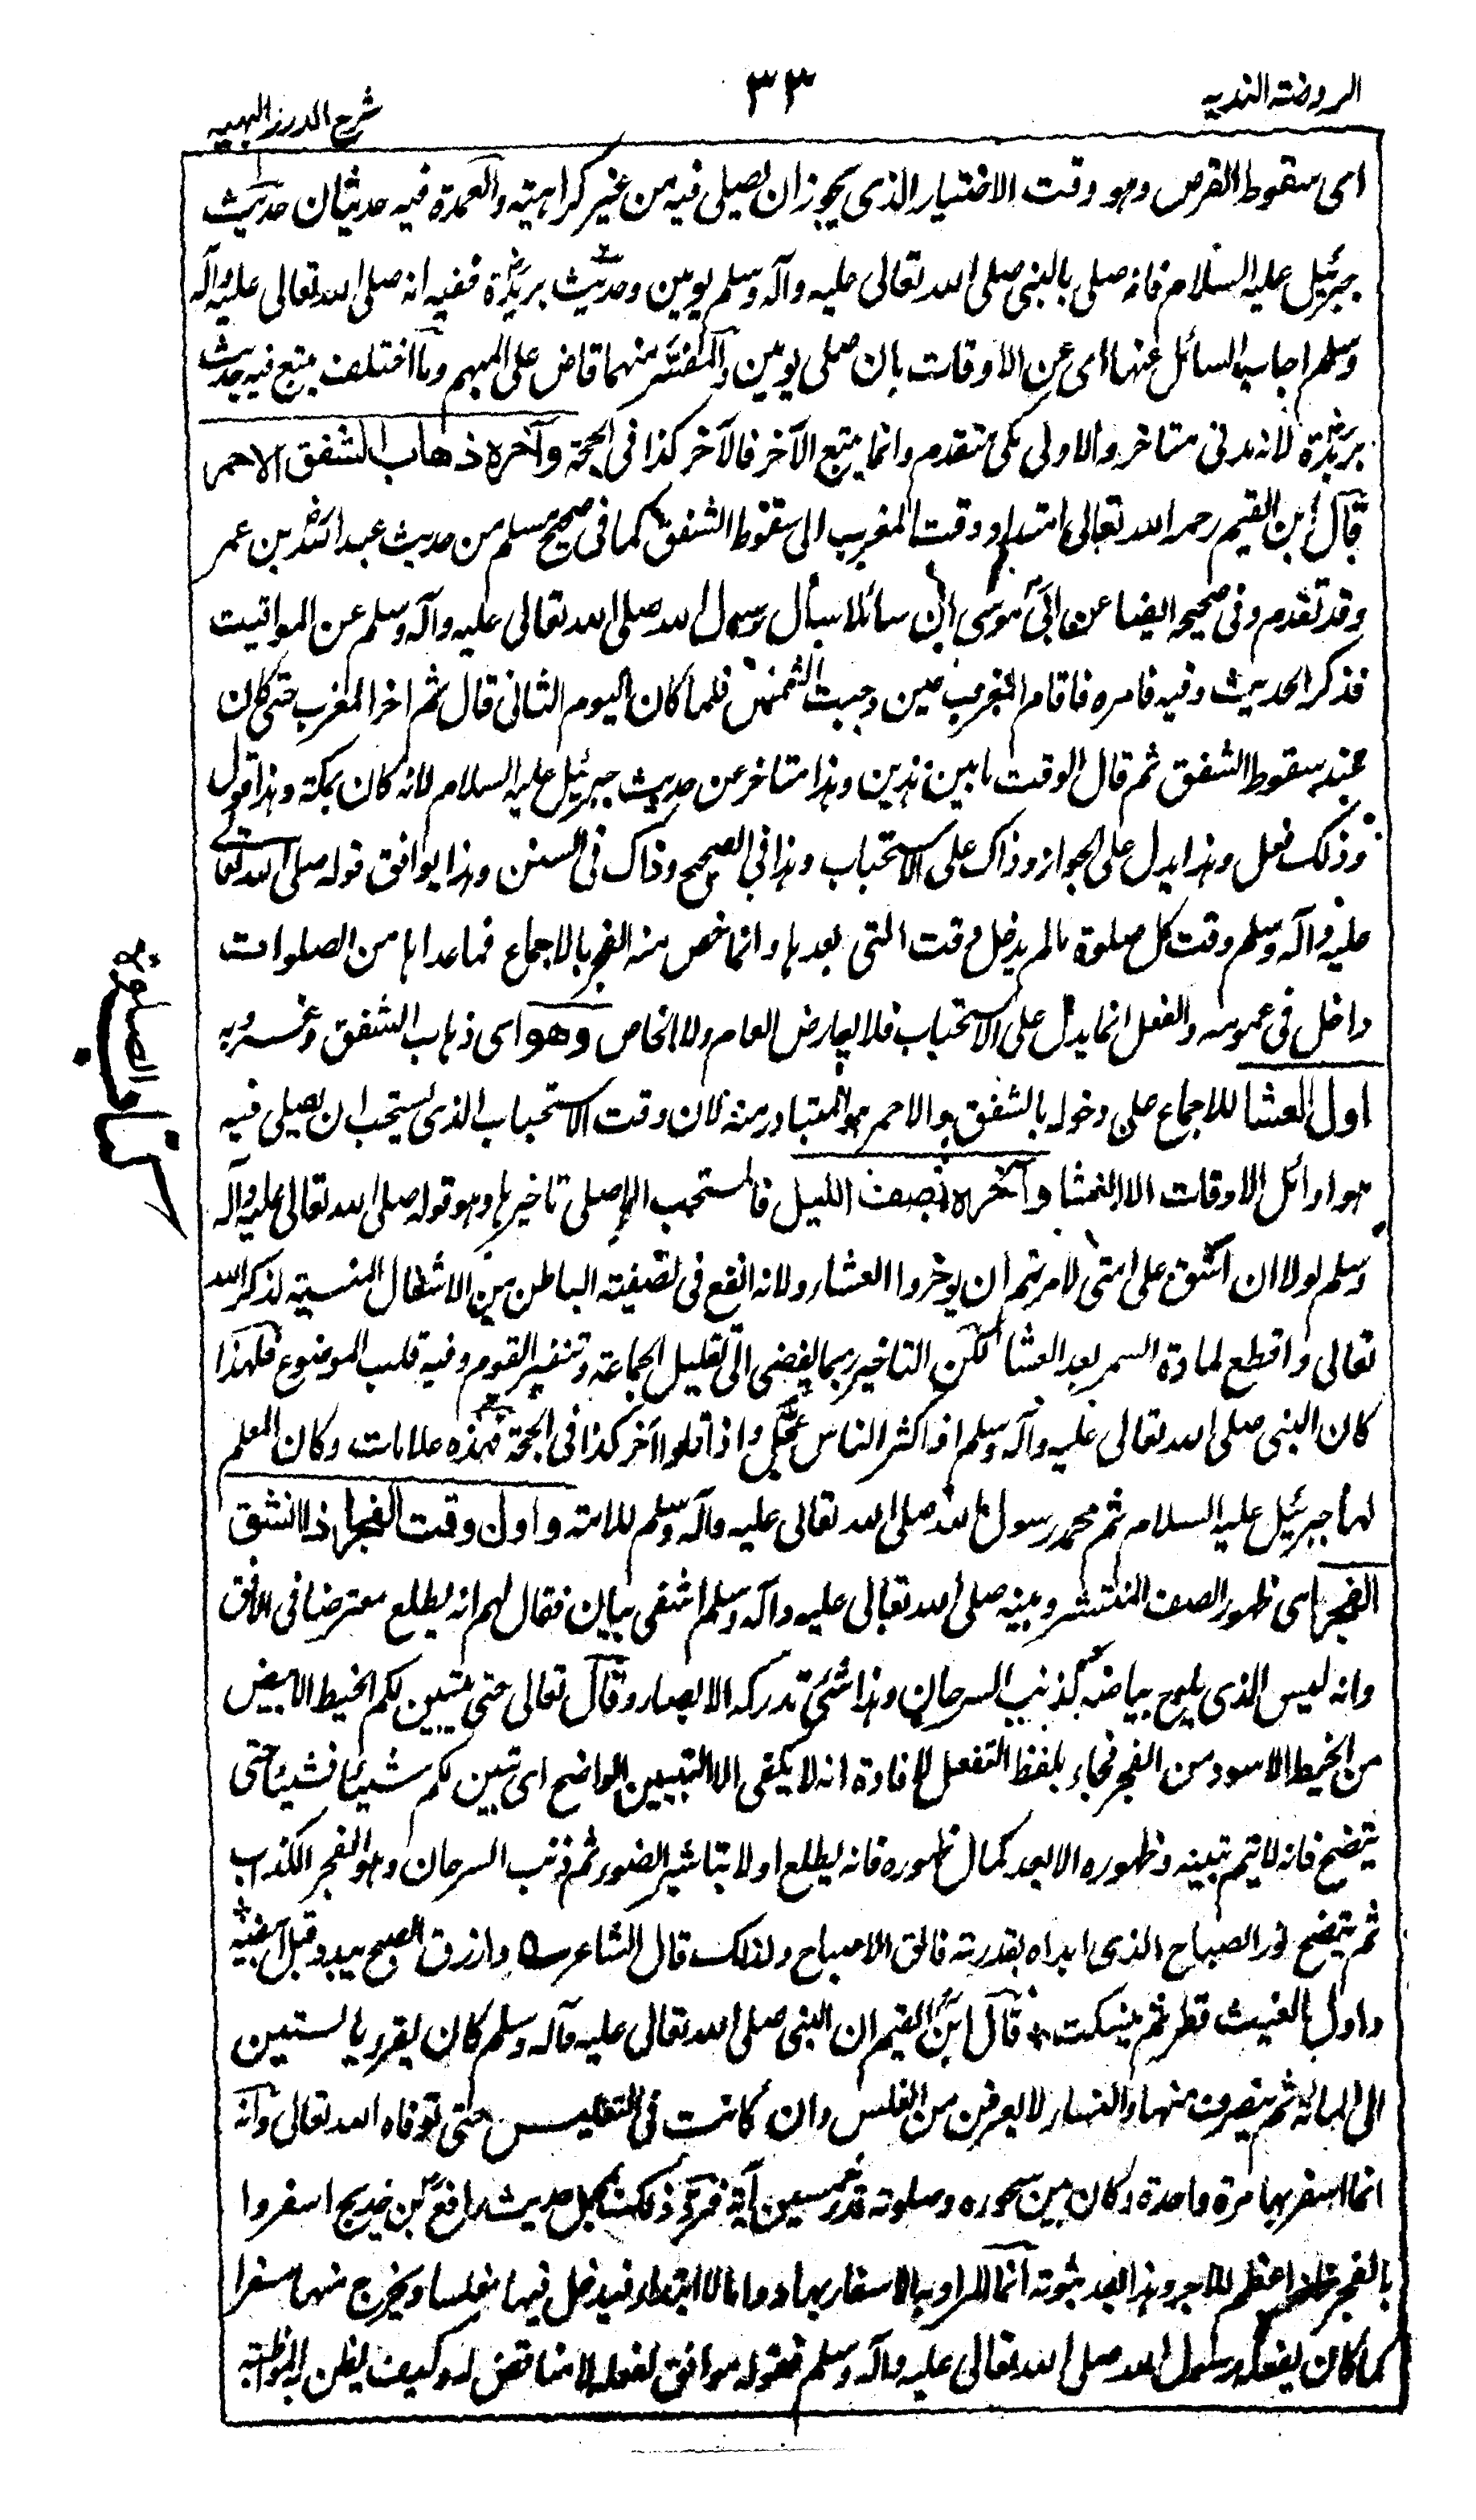 الروضة الندية
٣٣
شرح الدرر البهية
اى سقوط القرص وهو وقت الاختيار الذى يجوز ان يصلى فيه من غير كراهية والعمدة فيه حديثان حديث
جبرئيل عليه السلام فانه صلى بالنبى صلى الله تعالى عليه وآله وسلم يومين وحديث بريدة ففيه انه صلى الله تعالى عليه وآله
وسلم اجاب السائل عنها اى عن الاوقات بان صلى يومين والمفسر منهما قاض على المبهم وما اختلف يتبع فيه حديث
بريدة لانه مدنى متاخر والاول مكى متقدم وانما يتبع الآخر فالآخر كذا فى الحجة وآخره ذهاب الشفق الاحمر
قال ابن القيم رحمه الله تعالى امتداد وقت المغرب الى سقوط الشفق كما فى صحيح مسلم من حديث عبد الله بن عمر
وقد تقدم وفى صحيحه ايضا عن ابى موسى ان سائلا سأل رسول الله صلى الله تعالى عليه وآله وسلم عن المواقيت
فذكر الحديث وفيه فامره فاقام المغرب حين وجبت الشمس فلما كان اليوم الثانى قال ثم اخر المغرب حتى كان
عند سقوط الشفق ثم قال الوقت ما بين هذين وهذا متاخر عن حديث جبرئيل عليه السلام لانه كان بمكة وهذا قول
وذلك فعل وهذا يدل على الجواز وذاك على الاستحباب وهذا فى الصحيح وذاك فى السنن وهذا يوافق قوله صلى الله تعالى
عليه وآله وسلم وقت كل صلوة مالم يدخل وقت التى بعدها وانما خص منه الفجر بالاجماع فما عداها من الصلوات
داخل فى عمومه والفعل انما يدل على الاستحباب فلا يعارض العام ولا الخاص وهو اى ذهاب الشفق وغروبه
اول العشا للاجماع على دخوله بالشفق والاحمر هو المتبادر منه لان وقت الاستحباب الذى يستحب ان يصلى فيه
هو اوائل الاوقات الا العشا وآخره نصف الليل فالمستحب الاصلى تاخيرها وهو قوله صلى الله تعالى عليه وآله
وسلم لولا ان اشق على امتى لامرتهم ان يوخروا العشاء ولانه انفع فى تصفية الباطن من الاشغال المنسية لذكر الله
تعالى واقطع لمادة السمر بعد العشا لكن التاخير ربما يفضى الى تقليل الجماعة وتنفير القوم وفيه قلب الموضوع فلهذا
كان النبى صلى الله تعالى عليه وآله وسلم اذا كثر الناس عجل واذا قلوا آخر كذا فى الحجة فهذه علامات وكان المعلم
لها جبرئيل عليه السلام ثم محمد رسول الله صلى الله تعالى عليه وآله وسلم للامة واول وقت الفجر اذا انشق
الفجر اى ظهور الضوء المنتشر وبينه صلى الله تعالى عليه وآله وسلم اشفى بيان فقال لهم انه يطلع معترضا فى الافق
وانه ليس الذى يلوح بياضه كذنب السرحان وهذا شئ تدركه الابصار وقال تعالى حتى يتبين لكم الخيط الابيض
من الخيط الاسود من الفجر فجاء بلفظ التفعل لافادة انه لا يكفى الا التبين الواضح اى تبين لكم شيئا فشيئا حتى
يتضح فانه لا يتم تبينه وظهوره الا بعد كمال ظهوره فانه يطلع اولا تباشير الضوء ثم ذنب السرحان وهو الفجر الكذاب
ثم يتضح نور الصباح الذى ابداه بقدرته فالق الاصباح ولذلك قال الشاعر وازرق الصبح يبدو قبل ابيضه
واول الغيث قطر ثم ينسكب قال ابن القيم ان النبى صلى الله تعالى عليه وآله وسلم كان يقرء بالستين
الى المائة ثم ينصرف منها والنساء لا يعرفن من الغلس وان كانت فى التغليس حتى توفاه الله تعالى وانه
انما اسفر بها مرة واحدة وكان بين سحوره وصلوته قدر خمسين آية فرد ذلك بمجمل حديث رافع بن خديج اسفروا
بالفجر فانه اعظم للاجر وهذا بعد ثبوته انما المراد به الاسفار بها دواما لا ابتداء فيدخل فيها مغلسا ويخرج منها مسفرا
كما كان يفعله رسول الله صلى الله تعالى عليه وآله وسلم فقوله موافق لفعله لا مناقض له وكيف يظن به المواظبة